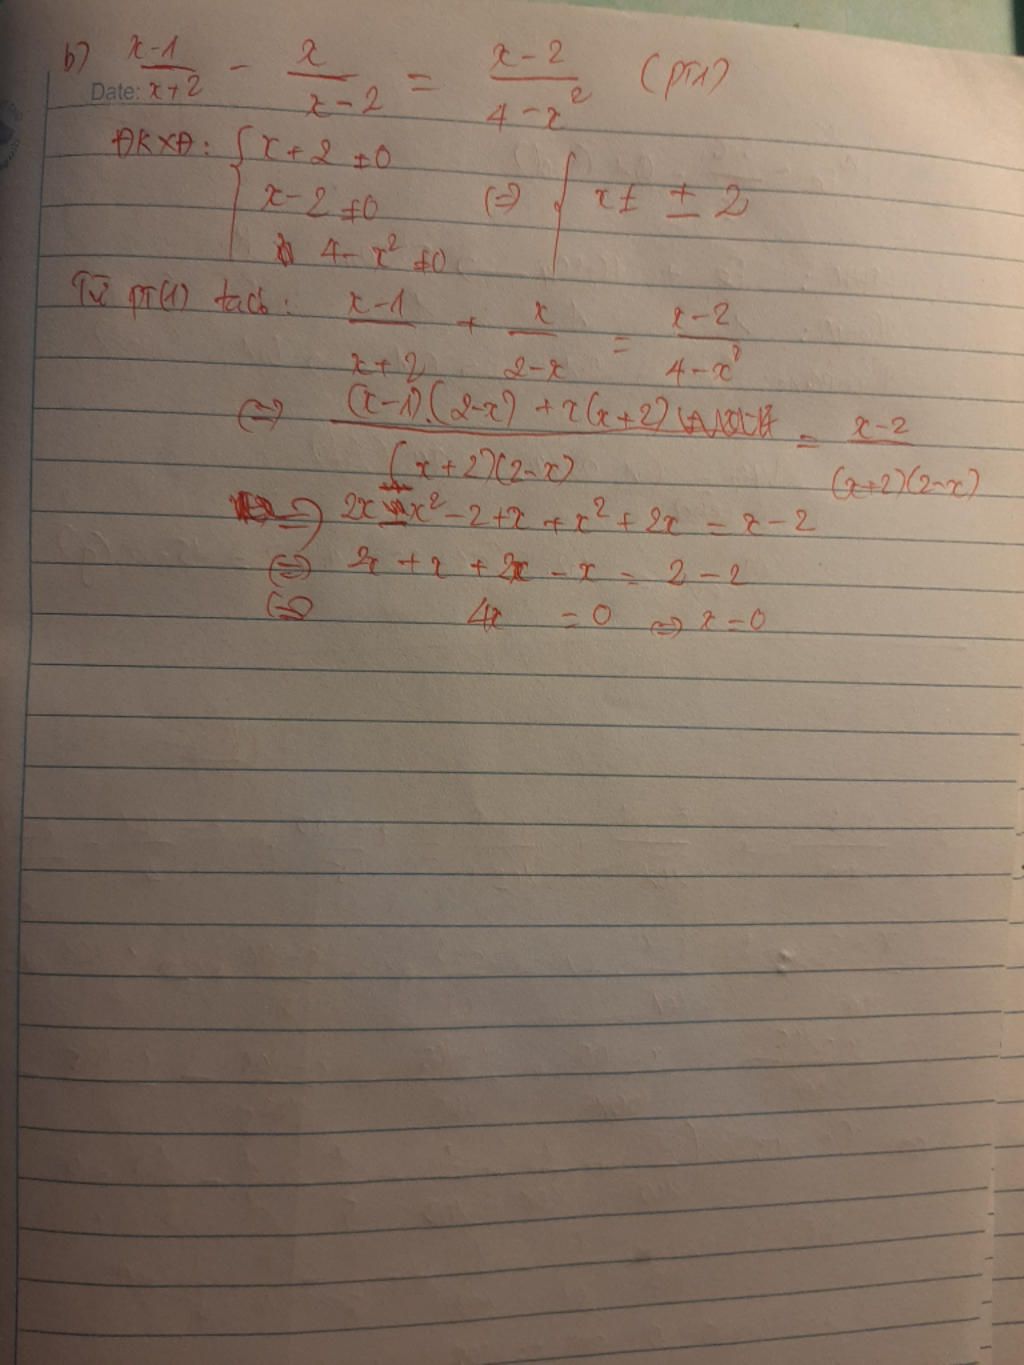 b) x-1/x+2 - x/x-2 = x-2/4-x² (PT1)
Date:
ĐKXĐ: { x+2 ≠0
x-2 ≠0 (=) { x ≠ ±2
4-x² ≠0
Từ PT(1) ta có: x-1/x+2 + x/2-x = x-2/4-x²
(=) (x-1).(2-x) + x(x+2)/(x+2)(2-x) = x-2/(x+2)(2-x)
=) 2x-x²-2+x+x²+2x = x-2
(=) 2x+x+2x-x = 2-2
(=) 4x = 0 (=) x=0